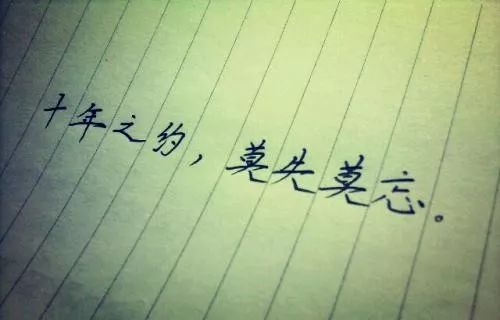 十年之约，莫失莫忘。